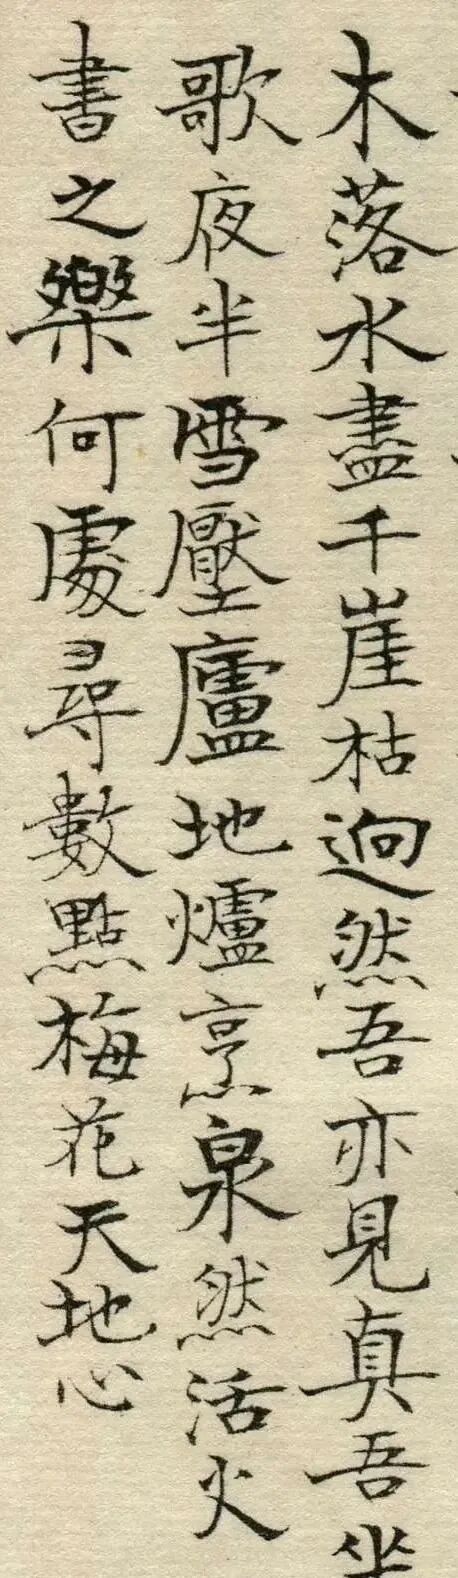 木落水盡千崖枯迥然吾亦見真吾坐
歌夜半雪壓廬地爐烹泉然活火
書之樂何處尋數點梅花天地心